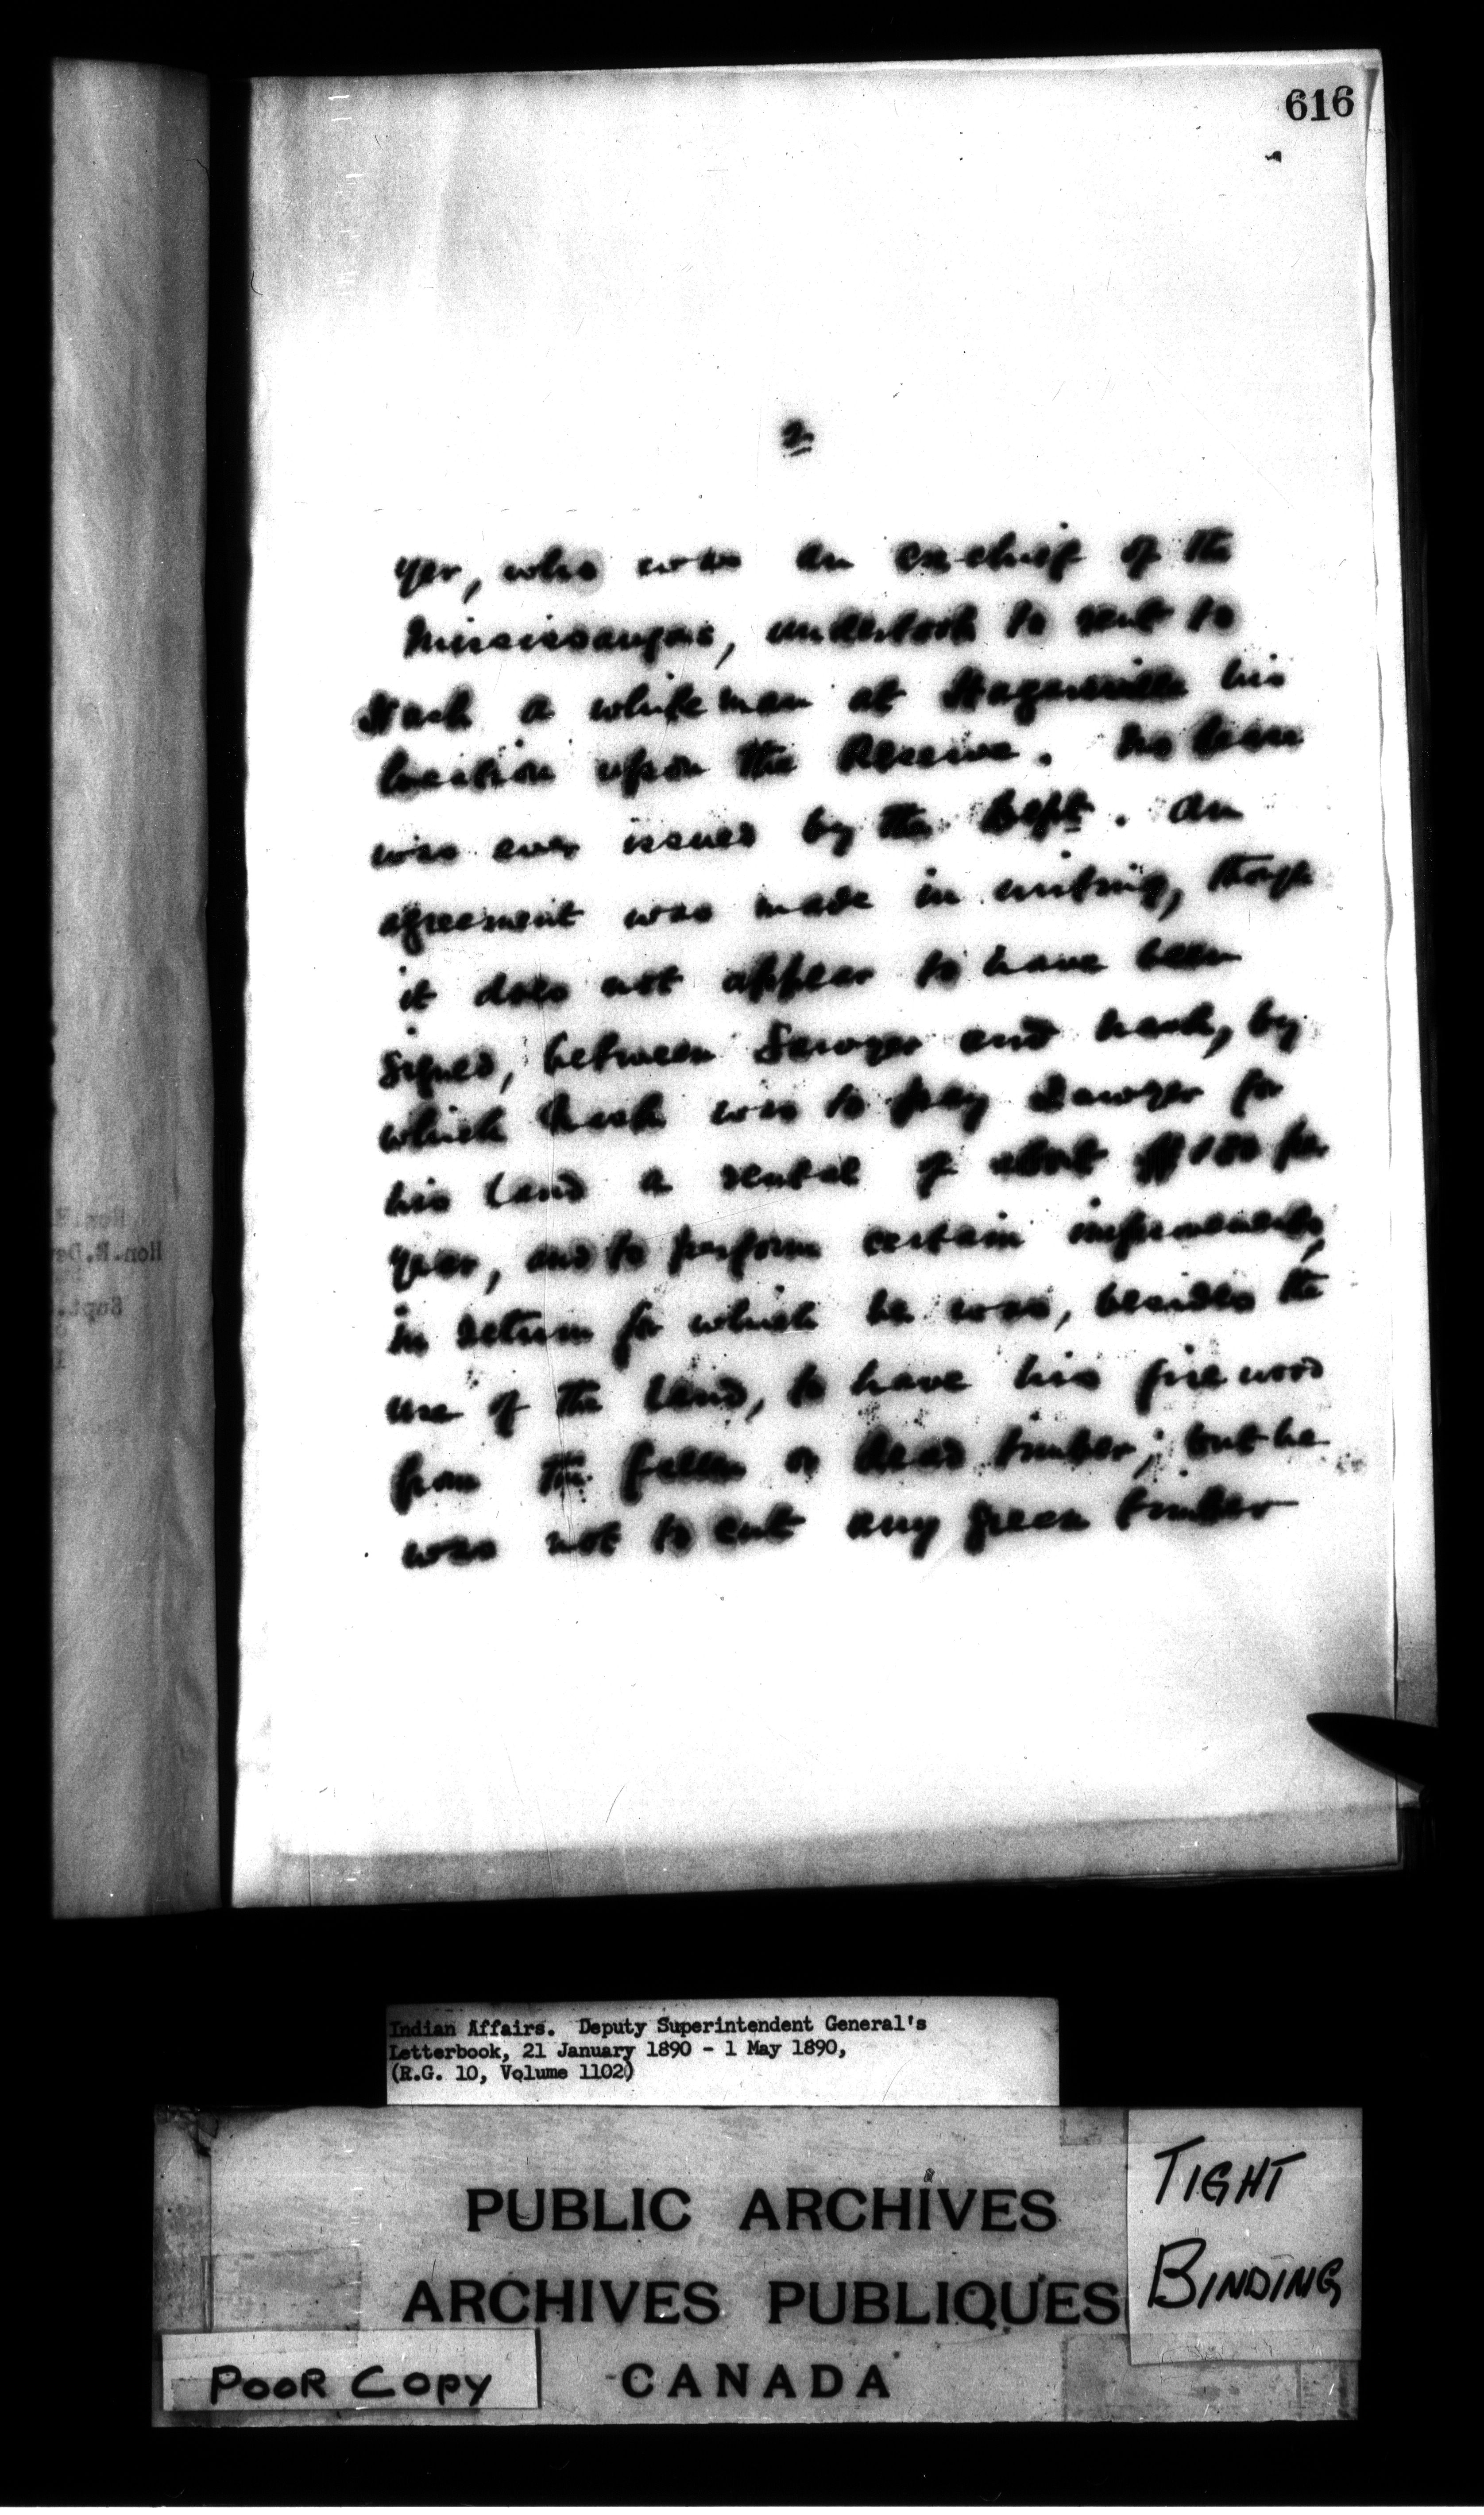 616
2
yer, who was an ex-chief of the
Mississaugas, undertook to rent to
Nash a white man at Hagersville his
location upon the Reserve. No lease
was ever issued by the Dept. An
agreement was made in writing, though
it does not appear to have been
signed, between Sawyer and Nash, by
which Nash was to pay Sawyer for
his land a rental of about $180 per
year, and to perform certain improvements,
in return for which he was, besides the
use of the land, to have his fire wood
from the fallen or dead timber; but he
was not to cut any green timber
Indian Affairs. Deputy Superintendent General's
Letterbook, 21 January 1890 - 1 May 1890,
(R.G. 10, Volume 1102)
PUBLIC ARCHIVES
ARCHIVES PUBLIQUES
CANADA
TIGHT
BINDING
POOR COPY